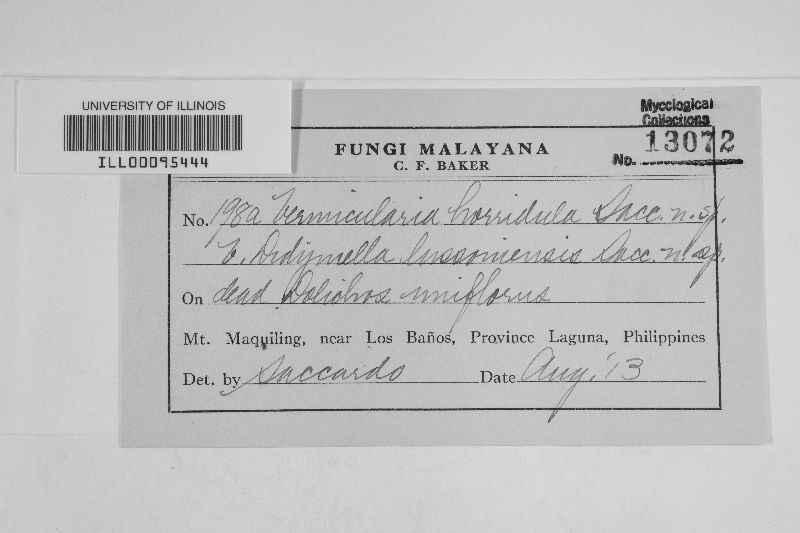 UNIVERSITY OF ILLINOIS
ILL00095444
Mycological
Collections
No. 13072
FUNGI MALAYANA
C. F. BAKER
No. 198a Vermicularia horridula Sacc. n. sp.
V. Didymella lussoniensis Sacc. n. sp.
On dead Dolichos uniflorus
Mt. Maquiling, near Los Baños, Province Laguna, Philippines
Det. by Saccardo Date Aug. '13